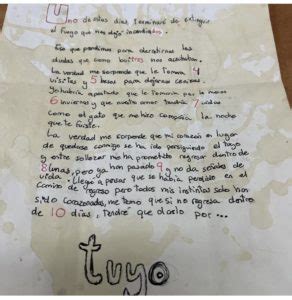 Uno de estos días, terminaré de extinguir
el fuego que nos dejó incendiados.
Eso que perdimos para derretirnos las
dudas que como buitres nos acechaban.
La verdad me sorprende que te tomara 4
visitas y 5 besos para dejarnos cenizas.
Yo habría apostado que te tomaría por lo menos
6 inviernos y que nuestro amor tendría 7 vidas
como el gato que me hizo compañía la noche
que te fuiste.
La verdad me sorprende que mi corazón en lugar
de quedarse conmigo se ha ido persiguiendo el tuyo
y entre sollozar me ha prometido regresar dentro de
8 lunas, pero ya han pasado 9 y no da señales de
vida. Llegó a pensar que se había perdido en el
camino de regreso pero todos mis instintos solo han
sido corazonadas, me temo que si no regresa dentro
de 10 días, tendré que darlo por ...
tuyo